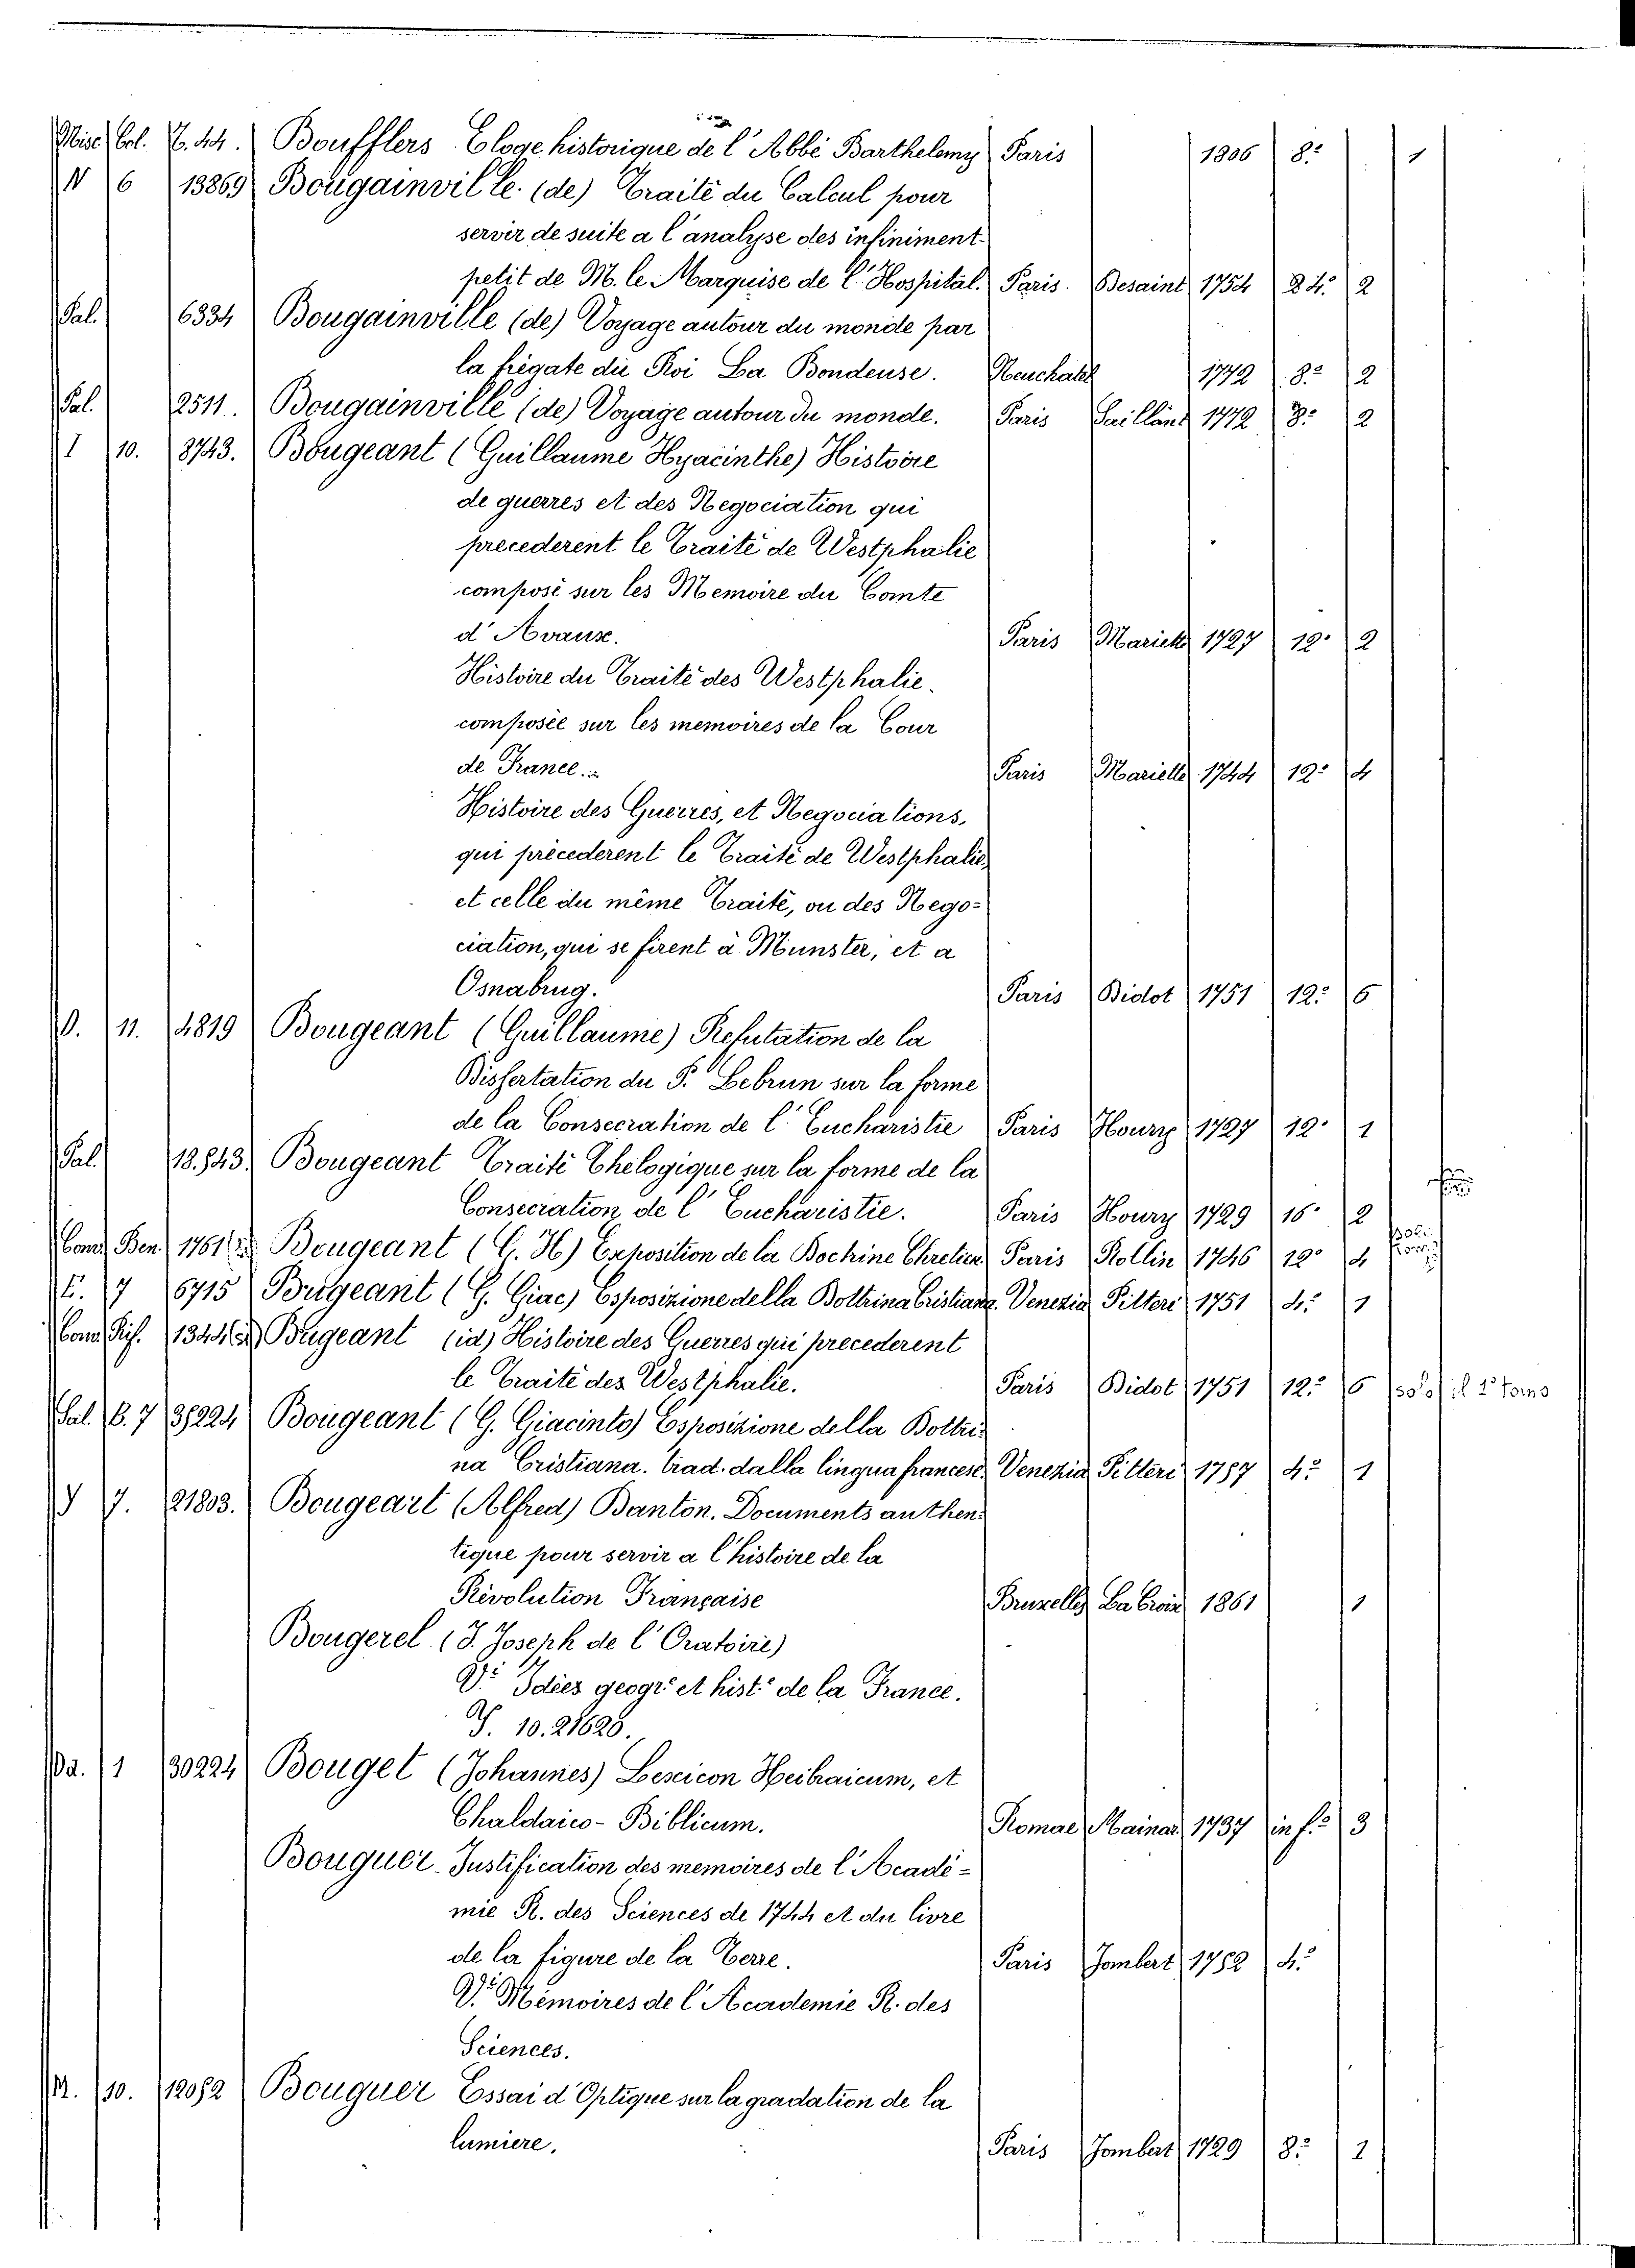 Misc. Col. C. 44. Boufflers Eloge historique de l'Abbé Barthelemy Paris 1806 8º 1
N 6 13869 Bougainville. (de) Traité du Calcul pour
servir de suite a l'analyse des infiniment-
petit de M. le Marquise de l'Hospital. Paris. Desaint 1754 4º 2
Pal. 6334 Bougainville (de) Voyage autour du monde par
la frégate du Roi La Bondeuse. Neuchatel 1772 8º 2
Pal. 2511. Bougainville (de) Voyage autour du monde. Paris Saillant 1772 8º 2
I 10. 8743. Bougeant (Guillaume Hyacinthe) Histoire
de guerres et des Negociation qui
precederent le Traité de Westphalie
composé sur les Memoire du Comte
d'Avaux. Paris Mariette 1727 12º 2
Histoire du Traité des Westphalie.
composée sur les memoires de la Cour
de France. Paris Mariette 1744 12º 4
Histoire des Guerres, et Negociations,
qui précederent le Traité de Westphalie,
et celle du même Traité, ou des Nego=
ciation, qui se firent à Munster, et a
Osnabrug. Paris Didot 1751 12º 6
O. 11. 4819 Bougeant (Guillaume) Refutation de la
Dissertation du P. Lebrun sur la forme
de la Consecration de l'Eucharistie Paris Houry 1727 12º 1
Pal. 18.843. Bougeant Traité Thelogique sur la forme de la
Consecration de l'Eucharistie. Paris Houry 1729 16º 2
Cons. Ben. 1761 Bougeant (G. H) Exposition de la Dochine Chretien Paris Rollin 1746 12º 4
E. 7 6715 Bugeant (G. Giac) Esposizione della Dottrina Cristiana. Venezia Pitteri 1751 4º 1
Cons. Rif. 1344 Bugeant (id) Histoire des Guerres qui precederent
le Traité des Westphalie. Paris Didot 1751 12º 6 solo il 2º tomo
Pal. B. 7 38224 Bougeant (G. Giacinto) Esposizione della Dottri=
na Cristiana. trad. dalla lingua francese. Venezia Pitteri 1787 4º 1
Y 7. 21803. Bougeart (Alfred) Danton. Documents authen=
tique pour servir a l'histoire de la
Révolution Française Bruxelles La Croix 1861 1
Bougerel (J. Joseph de l'Oratoire)
Vi Idées geogre et histe de la France.
Y. 10. 21625.
Da. 1 30224 Bouget (Johannes) Lexicon Heibraicum, et
Chaldaico-Biblicum. Romae Mainar 1737 in fº 3
Bouguer. Justification des memoires de l'Acadé=
mie R. des Sciences de 1744 et du livre
de la figure de la Terre. Paris Jombert 1752 4º
Vi Mémoires de l'Academie R. des
Sciences.
M. 10. 12052 Bouguer Essai d'Optique sur la gradation de la
lumiere. Paris Jombert 1729 8º 1